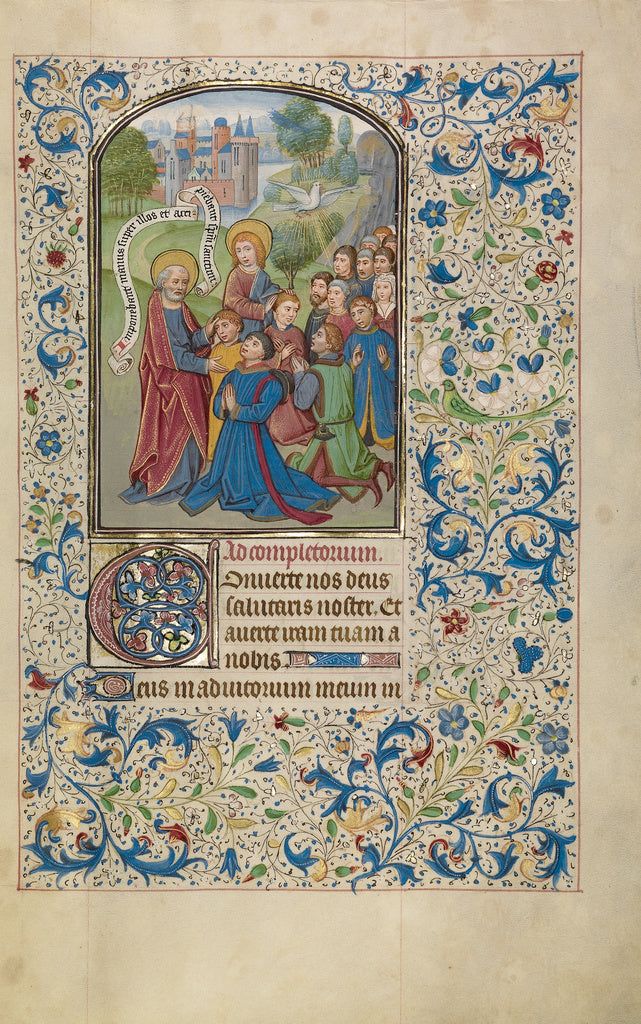 Imponebant manus super illos et acci-
piebant spm sanctum
Ad completorium.
Onuerte nos deus
salutaris noster. Et
auerte iram tuam a
nobis.
Deus in adiutorium meum in